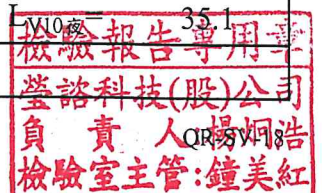 LV10夜 35.1
檢驗報告專用章
瑩諮科技(股)公司
負責人:楊炯浩
QR-SV-18
檢驗室主管:鐘美紅